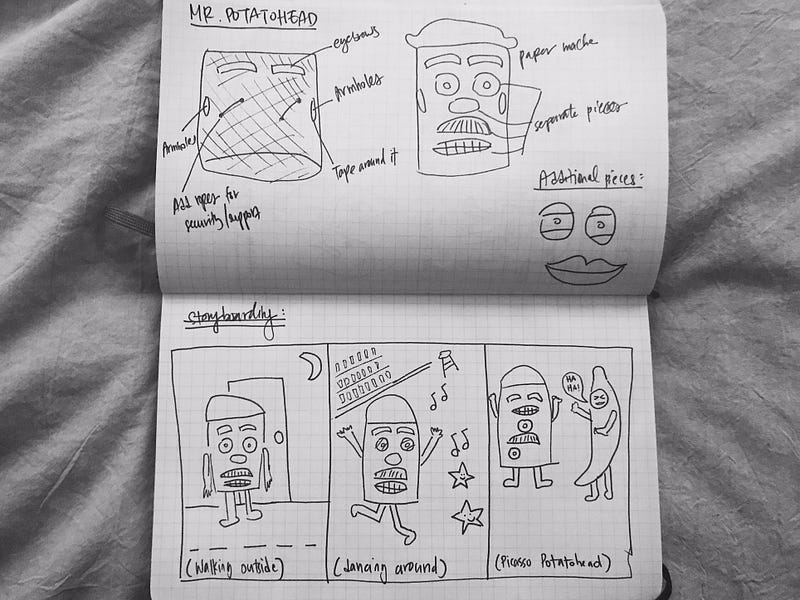 MR. POTATOHEAD
eyebrows
paper mache
Armholes
separate pieces
Armholes
Tape around it
Additional pieces:
Add ropes for
security/support
Storyboarding:
HA
HA!
(Walking outside)
(dancing around)
(Picasso Potatohead)